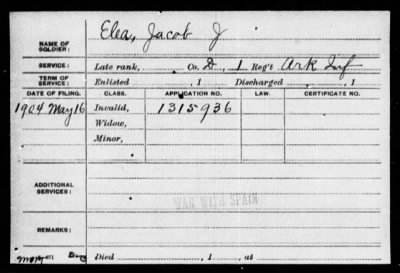 NAME OF SOLDIER: Elea, Jacob J
SERVICE: Late rank, Co. D, 1 Reg't Ark Inf
TERM OF SERVICE: Enlisted , 1 Discharged , 1
DATE OF FILING. CLASS. APPLICATION NO. LAW. CERTIFICATE NO.
1904 May 16 Invalid, 1315936
Widow,
Minor,
ADDITIONAL SERVICES:
WAR WITH SPAIN
REMARKS:
Died , 1 , at